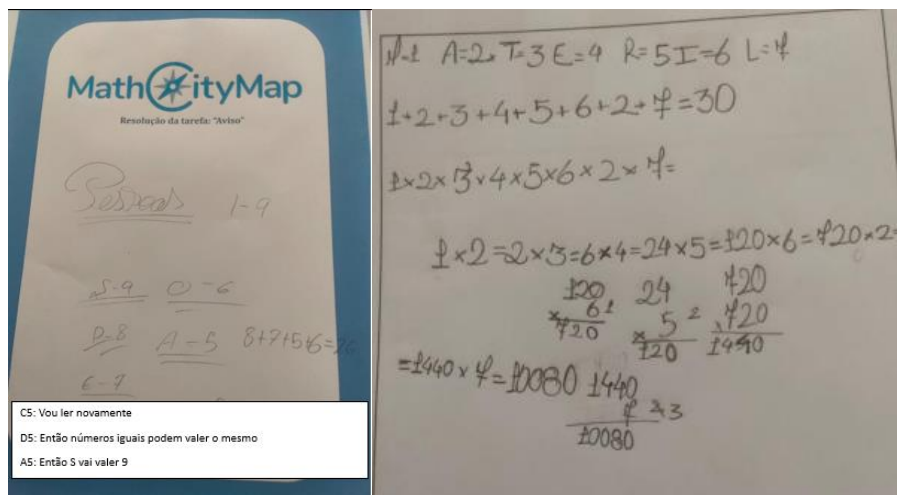 MathCityMap
Resolução da tarefa: "Aviso"
Pessoas 1-9
S-9 O-6
P-8 A-5 8+7+5+6=26
E-7
C5: Vou ler novamente
D5: Então números iguais podem valer o mesmo
A5: Então S vai valer 9
M=1 A=2 T=3 E=4 R=5 I=6 L=7
1+2+3+4+5+6+2+7=30
1×2×3×4×5×6×2×7=
1×2=2×3=6×4=24×5=120×6=720×2=
120 24 720
×6 1 ×5 2 ×720
720 120 1440
=1440×7=10080 1440
7 2 3
10080